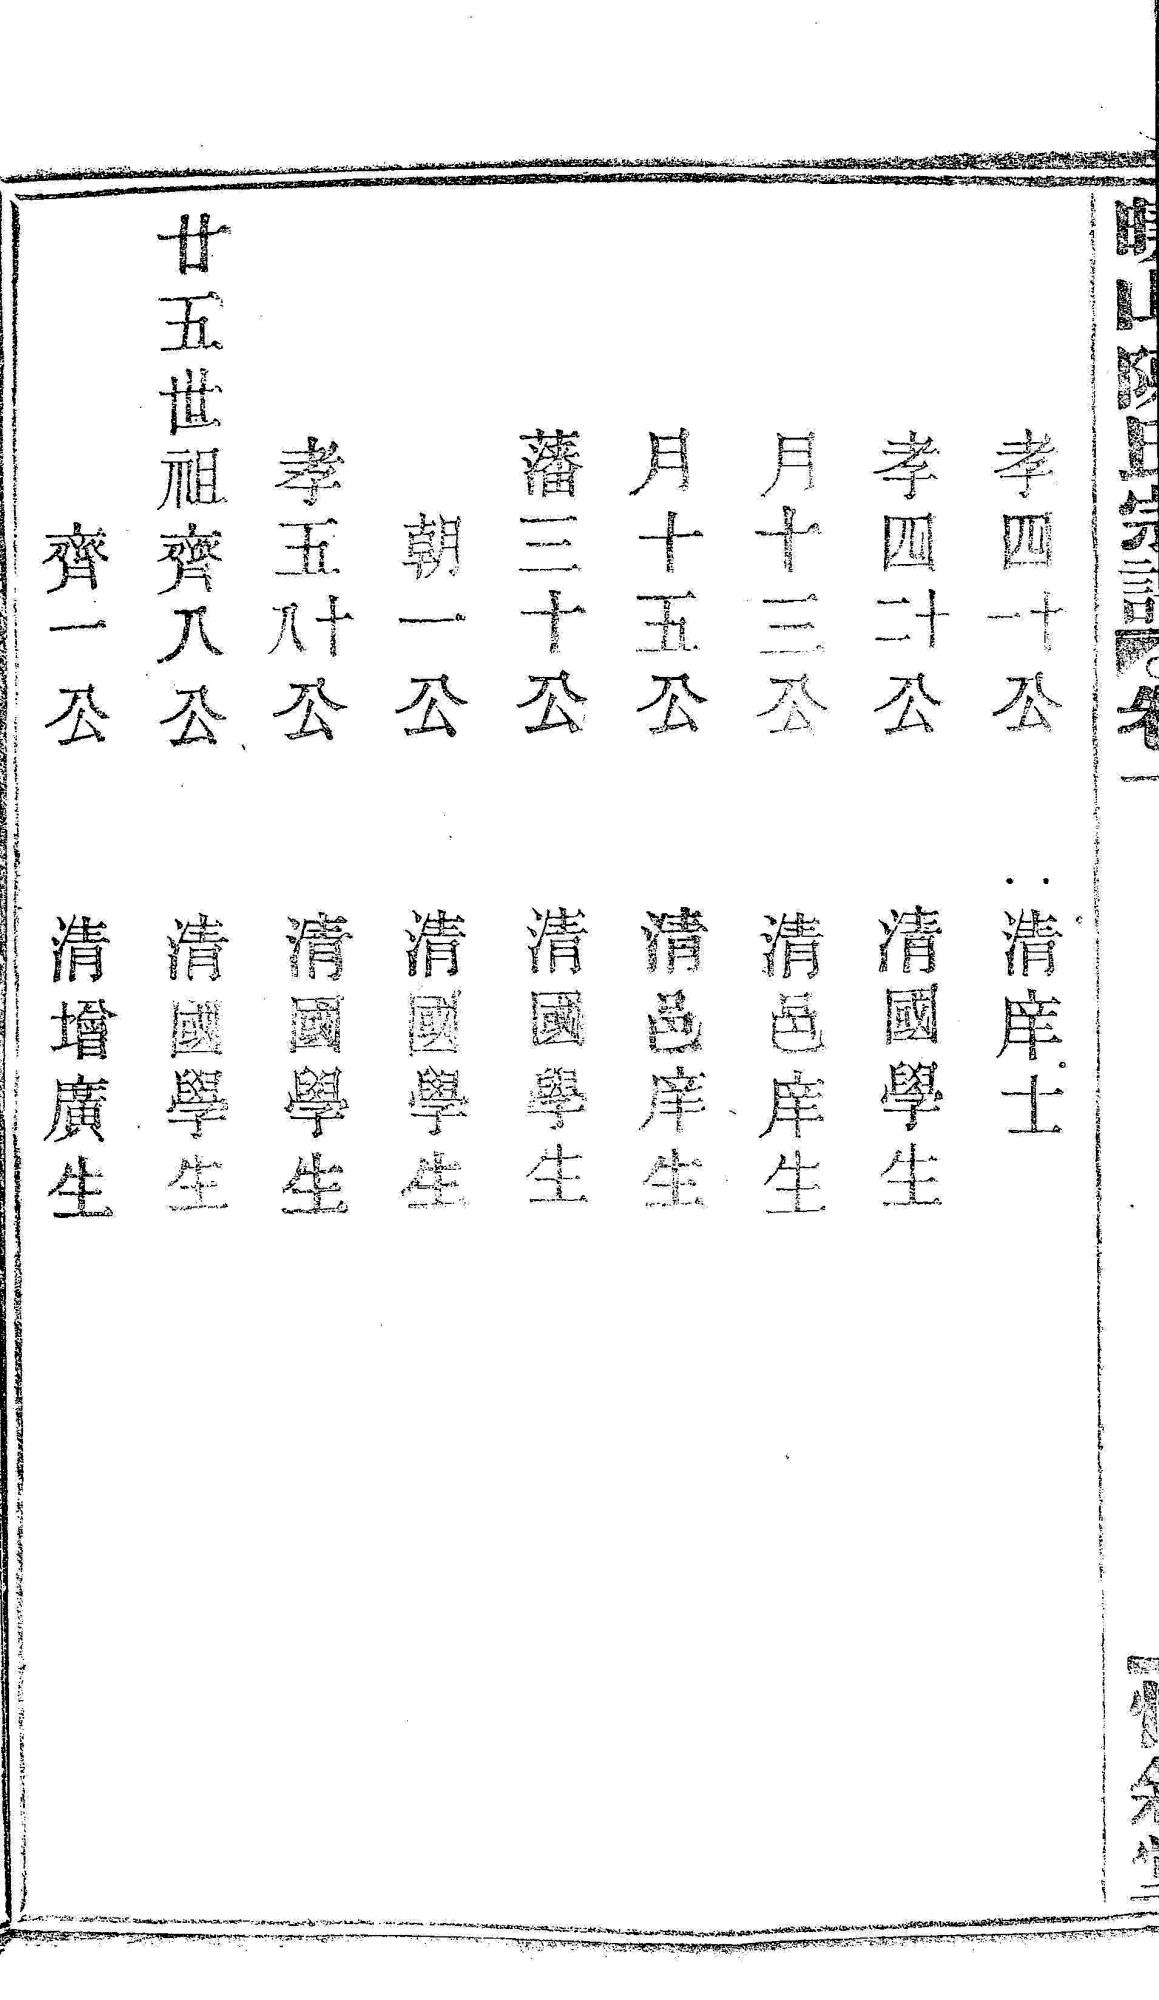 山陳氏宗譜 卷一
孝四十一公 清庠士
孝四十二公 清國學生
月十三公 清邑庠生
月十五公 清邑庠生
藩三十公 清國學生
朝一公 清國學生
孝五十八公 清國學生
廿五世祖齊八公 清國學生
齊一公 清增廣生